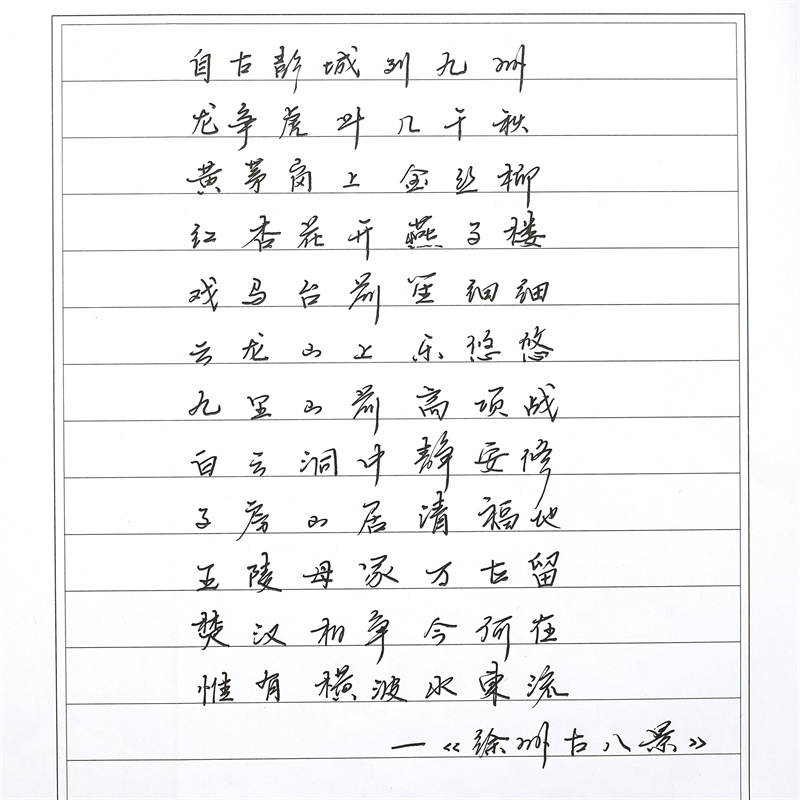 自古彭城列九州
龙争虎斗几千秋
黄茅岗上金丝柳
红杏花开燕子楼
戏马台前筐细细
云龙山上乐悠悠
九里山前高项战
白云洞中静安修
子房山居清福地
王陵母冢万古留
楚汉相争今何在
惟有横波水东流
—《徐州古八景》